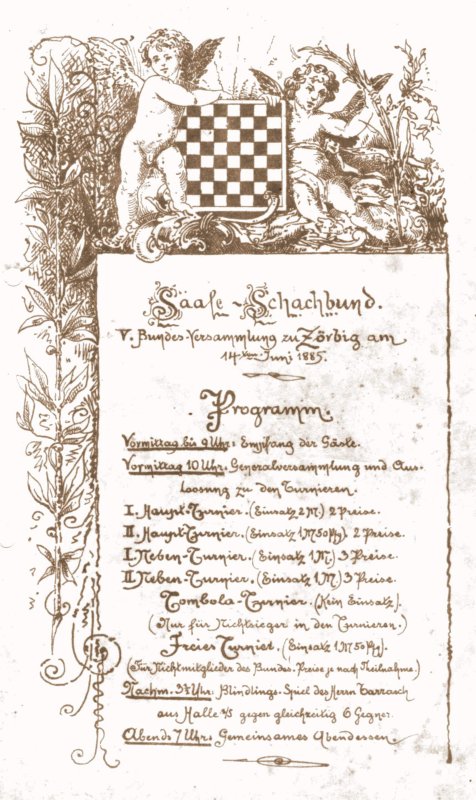 Saale-Schachbund.
V. Bundes-Versammlung zu Zörbig am
14ten Juni 1885.
Programm.
Vormittag bis 9 Uhr: Empfang der Gäste.
Vormittag 10 Uhr: Generalversammlung und Aus-
loosung zu den Turnieren.
I. Haupt-Turnier. (Einsatz 2 M.) 2 Preise.
II. Haupt-Turnier. (Einsatz 1 M 50 Pfg). 2 Preise.
I Neben-Turnier. (Einsatz 1 M.) 3 Preise.
II Neben-Turnier. (Einsatz 1 M.) 3 Preise.
Tombola-Turnier. (Kein Einsatz).
(Nur für Nichtsieger in den Turnieren.)
Freier Turnier. (Einsatz 1 M 50 Pfg).
(Für Nichtmitglieder des Bundes. Preise je nach Theilnahme.)
Nachm. 3½ Uhr: Blindlings-Spiel des Herrn Tarrasch
aus Halle a/S gegen gleichzeitig 6 Gegner.
Abends 7 Uhr: Gemeinsames Abendessen